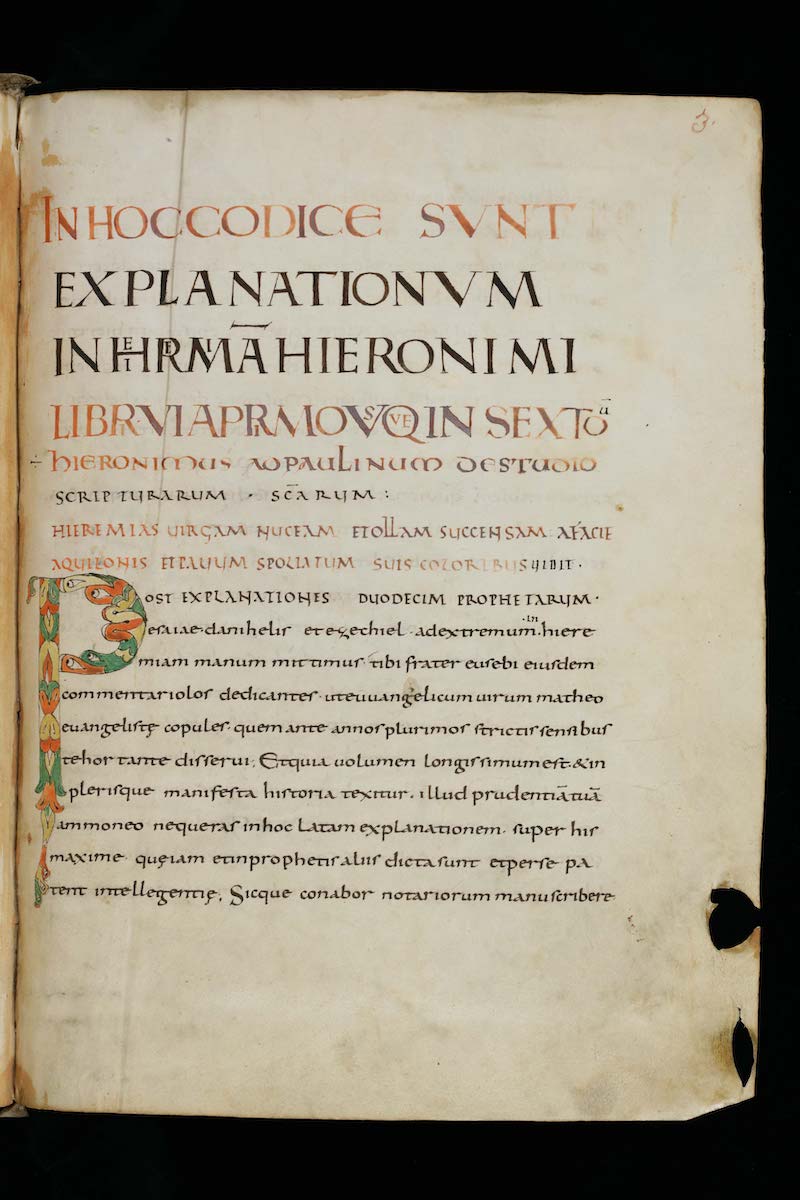 3.
IN HOC CODICE SVNT
EXPLANATIONVM
IN HIEREMIĀ HIERONIMI
LIBRI VI A PRIMO VSQVE IN SEXTŌ
HIERONIMUS AD PAULINUM DE STUDIO
SCRIPTURARUM · SC̄ARUM :
HIEREMIAS UIRGAM NUCEAM ET OLLAM SUCCENSAM A FACIE
AQUILONIS ET PAUUM SPOLIATUM SUIS COLORIBUS UIDIT ·
POST EXPLANATIONES DUODECIM PROPHETARUM ·
esaiae danihelis et ezechiel · ad extremum · in · hiere
miam manum mittimus · tibi frater eusebi eiusdem
commentariolos dedicantes · ut euuangelicum uirum matheo
euangelistę copules · quem ante annos plurimos strictis sensibus
te hortante disserui; Et quia uolumen longissimum est · & in
plerisque manifesta historia texitur · illud prudentiā tuā
ammoneo ne queras in hoc latam explanationem · super his
maxime · quę iam et in prophetis aliis dicta sunt et per se pa
tent intellegentię; Sicque conabor notariorum manu scribere